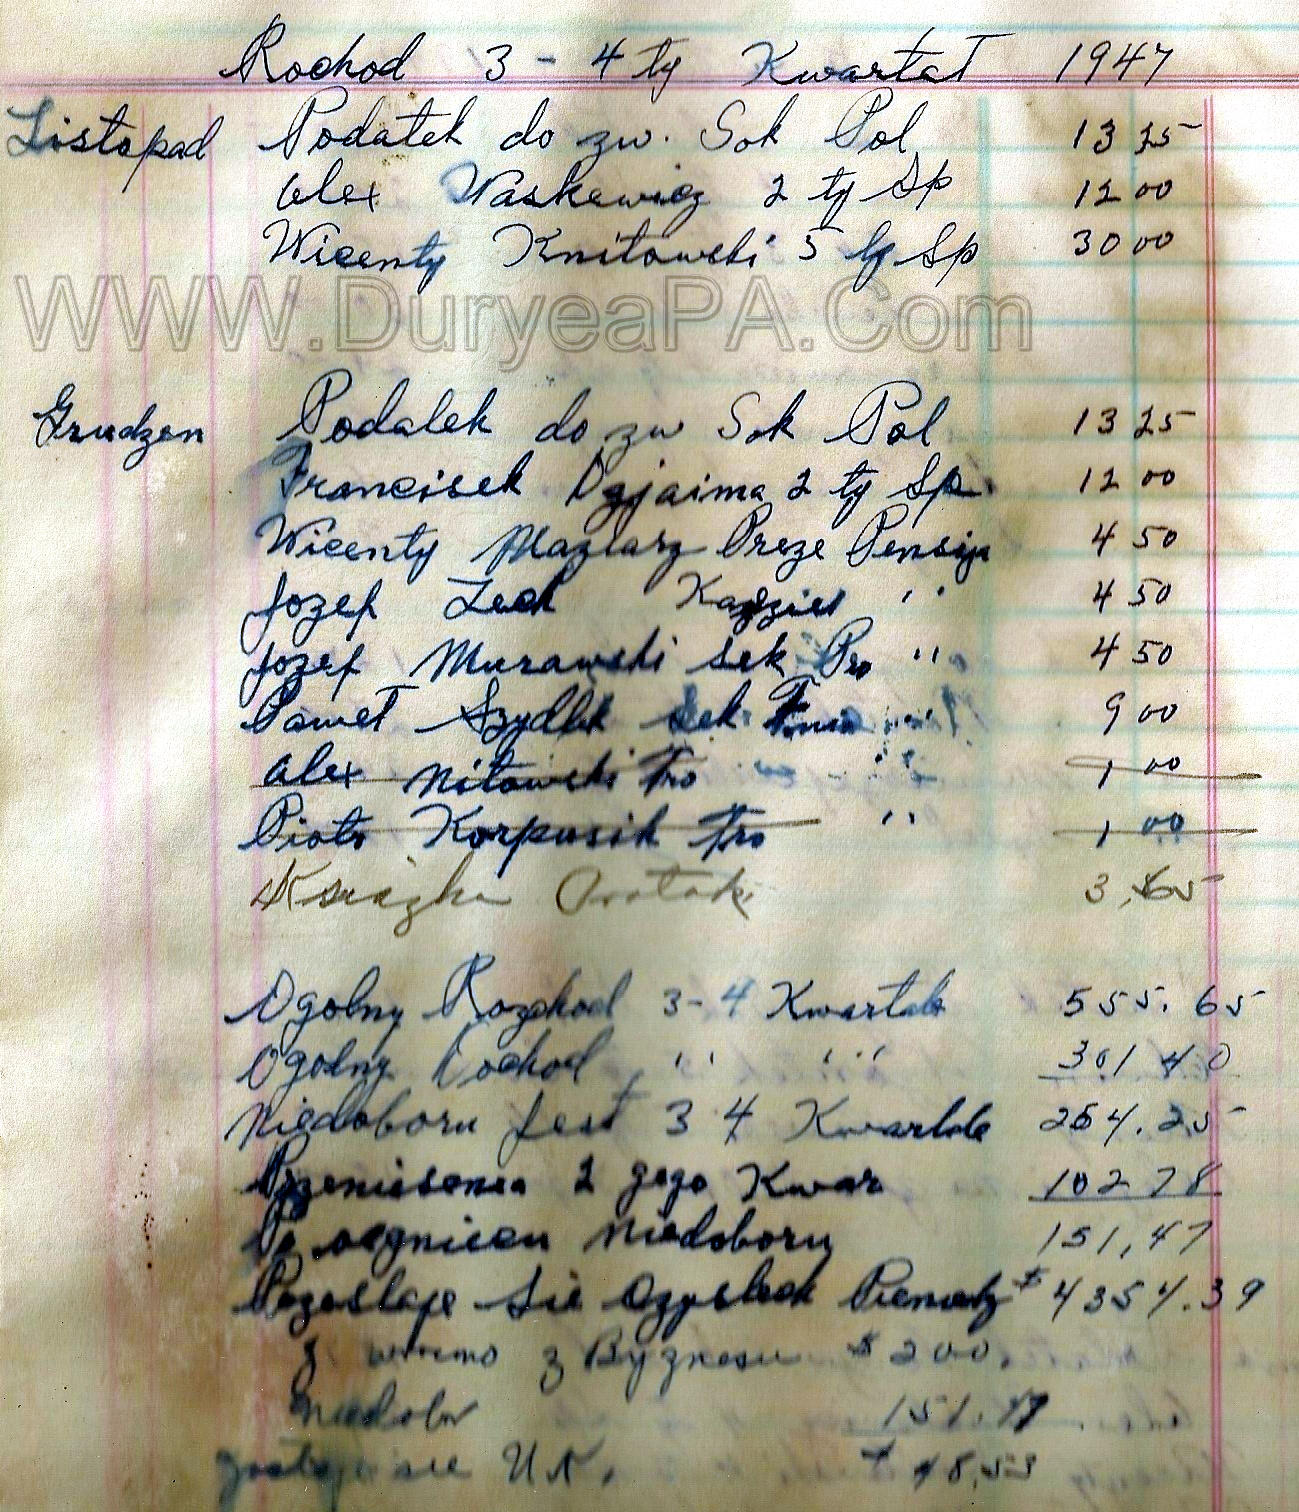 Rochod 3 - 4 ty Kwartat 1947
Listopad Podatek do zw. Sok Pol 13 25
Alex Waskewicz 2 ty Sp 12 00
Wicenty Knitowski 5 ty Sp 30 00
WWW.DuryeaPA.Com
Grudzen Podatek do zw Sok Pol 13 25
Francisek 2 ty Sp. 12 00
Wicenty Mazlarz Preze Pensija 4 50
Jozef Lech " 4 50
Jozef Murawski Sek Pro " 4 50
Pawet Szydlek Sek " 9 00
Alex Nitowski Tro " 1 00
Piotr Korpusik Tro " 1 00
Ksiazka 3,65
Ogolny Rozchod 3-4 Kwartale 555.65
Ogolny Dochod " " 301 40
Niedoboru Jest 3 4 Kwartale 254.25
Przeniesenia 2 giego Kwar 102 78
niedoboru 151,47
Pozostaje Sie Czysteck Pieniedz $4354.39
z Byznesu $200.
niedobor 151.47
U.N. $ 48,53